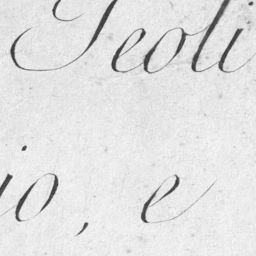 Teoli
io, e